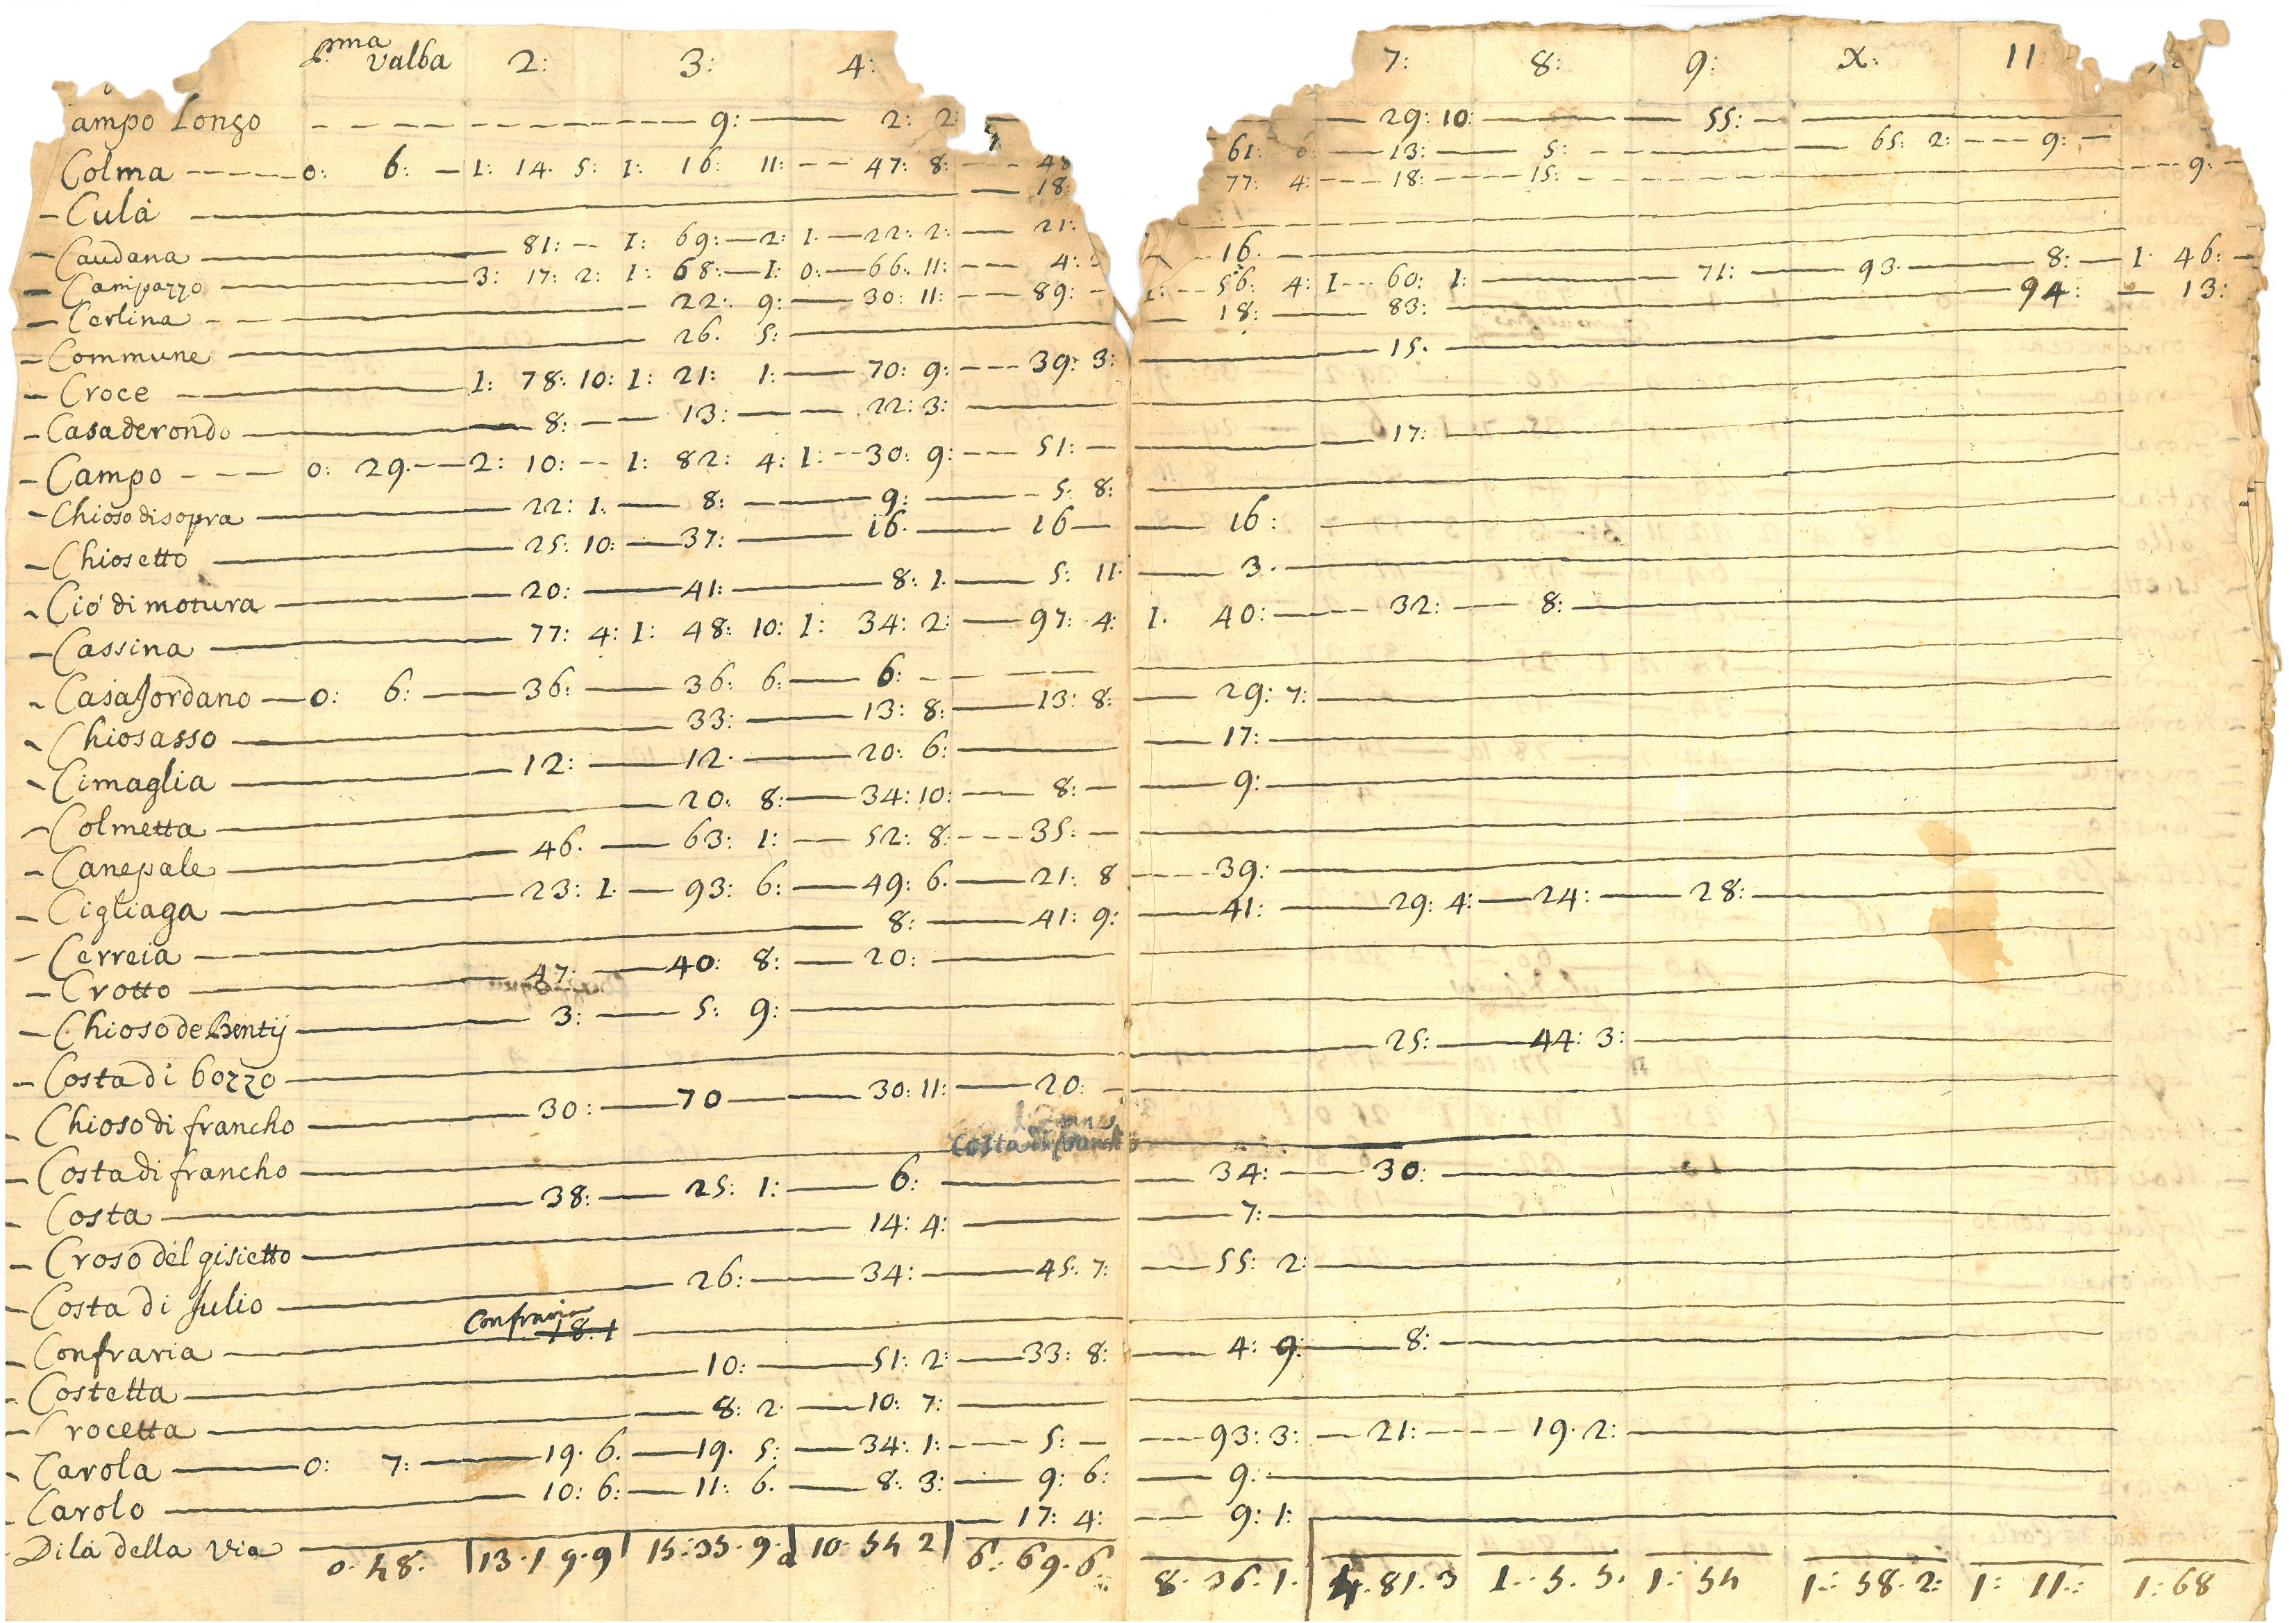 p.ma valba 2: 3: 4: 7: 8: 9: X: 11
ampo Longo 9: 2: 2: 29: 10: 55:
Colma 0: 6: I: 14. 5: I: 16: 11: 47: 8: 48 61: 6: 13: 5: 65: 2: 9:
Culà 18: 77: 4: 18: 15: 9:
Caudana 81: I: 69: 2: I. 22: 2: 21:
Campazzo 3: 17: 2: I: 68: I: 0: 66: 11: 4: 16.
Cerlina 22: 9: 30: 11: 89: I: 56: 4: I 60: 1: 71: 93. 8: I. 46:
Commune 26. 5: 18: 83: 94: 13:
Croce I: 78: 10: I: 21: 1: 70: 9: 39: 3: 15.
Casaderondo 8: 13: 22: 3:
Campo 0: 29. 2: 10: I: 82: 4: I: 30: 9: 51: 17:
Chioso disopra 22: 1. 8: 9: 5: 8:
Chiosetto 25: 10: 37: 16. 16 16:
Ciò di motura 20: 41: 8: 1. 5: 11. 3.
Cassina 77: 4: I: 48: 10: I: 34: 2: 97: 4: I. 40: 32: 8:
Casa Jordano 0: 6: 36: 36: 6: 6:
Chiosasso 33: 13: 8: 13: 8: 29: 7:
Cimaglia 12: 12. 20: 6: 17:
Colmetta 20: 8: 34: 10: 8: 9:
Canepale 46. 63: 1: 52: 8: 35:
Cigliaga 23: 1. 93: 6: 49: 6. 21: 8 39:
Cerreia 8: 41: 9: 41: 29: 4: 24: 28:
Crotto 47: 40: 8: 20:
Chioso de 3: 5: 9:
Costa di bozzo 25: 44: 3:
Chioso di francho 30: 70 30: 11: 20:
Costa di francho Costa di francho
Costa 38: 25: 1: 6: 34: 30:
Croso del gisietto 14: 4: 7:
Costa di Julio 26: 34: 45: 7: 55: 2:
Confraria Confraria 18. 1
Costetta 10: 51: 2: 33: 8: 4: 9: 8:
Crocetta 8: 2. 10: 7:
Carola 0: 7: 19. 6. 19. 5: 34: 1: 5: 93: 3: 21: 19. 2:
Carolo 10: 6: 11: 6. 8: 3: 9: 6: 9.
Dilà della via 17: 4: 9: 1:
0. 48. 13. 19. 9 15: 35. 9. 10. 54 2 6: 69. 6: 8. 36. 1. 4. 81. 3 1. 5. 5. 1: 54 1: 58. 2: 1: 11: 1: 68